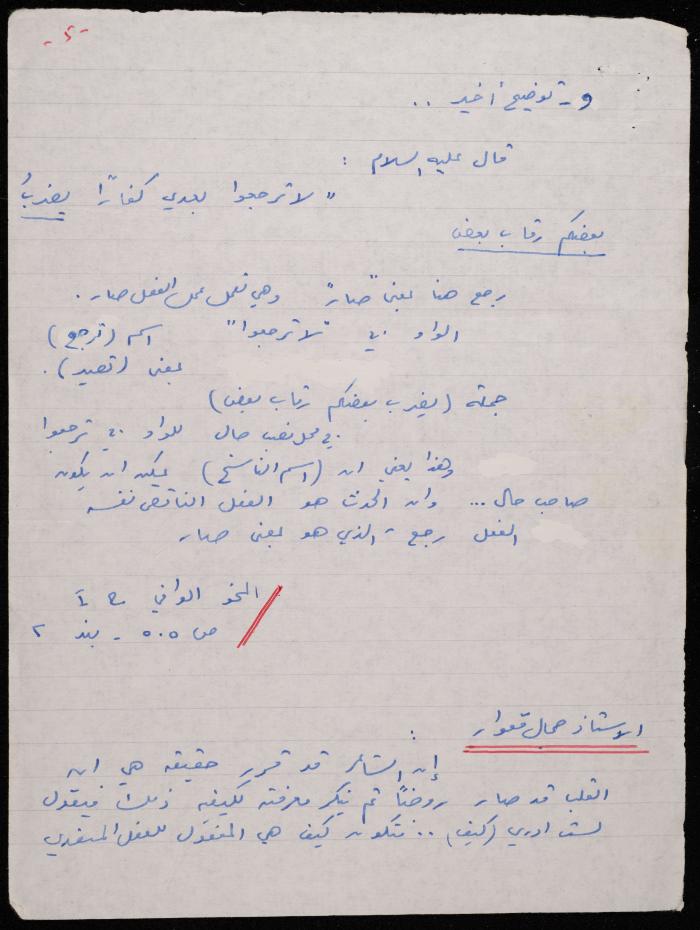 - ٤ -
و - توضيح أخير ..
قال عليه السلام :
" لا ترجعوا بعدي كفارًا يضربُ
بعضكم رقاب بعض
رجع هنا بمعنى "صار" وهي تعمل عمل الفعل صار .
الواو في "لا ترجعوا" اسم (ترجع)
بمعنى (تصير) .
جملة (يضرب بعضكم رقاب بعض)
في محل نصب حال للواو في ترجعوا
وهذا يعني ان (اسم الناسخ) يمكن ان يكون
صاحب حال ... وان الحدث هو الفعل الناقص نفسه
الفعل رجع - الذي هو بمعنى صار
النحو الوافي ج
ص ٥٠٥ - بند ٢
الاستاذ جمال قعوار :
إن الشاعر قد قرر حقيقه هي ان
القلب قد صار روضًا ثم ينكر معرفته لكيفيه ذلك فيقول
لست ادري (كيف) .. فتكون كيف هي المفعول للفعل المتعدي